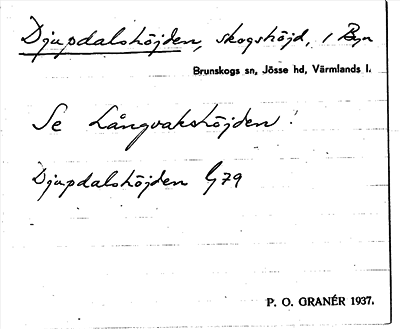 Djupdalshöjden, skogshöjd, i Byn
Brunskogs sn, Jösse hd, Värmlands l.
Se Långvakshöjden!
Djupdalshöjden G79
P. O. GRANÉR 1937.